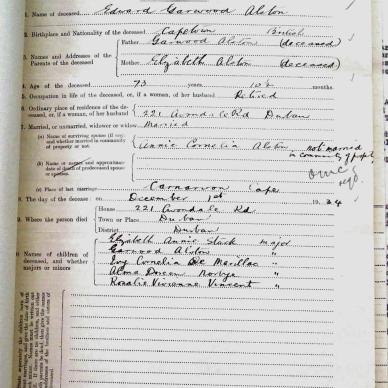 1. Name of deceased Edward Garwood Alston
2. Birthplace and Nationality of the deceased Capetown British
3. Names and Addresses of the Parents of the deceased
Father Garwood Alston (deceased)
Mother Elizabeth Alston (deceased)
4. Age of the deceased 73 years 10½ months
5. Occupation in life of the deceased, or, if a woman, of her husband Retired
6. Ordinary place of residence of the deceased, or, if a woman, of her husband 221 Avondale Rd Durban
7. Married, or unmarried, widower or widow Married
(a) Name of surviving spouse (if any, and whether married in community of property or not Annie Cornelia Alston not married in community of property
(b) Name and approximate date of death of predeceased spouse or spouses
(c) Place of last marriage Carnarvon Cape
8. The day of the decease on December 1st 1934
9. Where the person died
House 221 Avondale Rd
Town or Place Durban
District Durban
10. Names of children of deceased, and whether majors or minors
Elizabeth Annie Stark major
Garwood Alston "
Ivy Cornelia De Marillac "
Alma Doreen "
Rosalie Vivienne Vincent "